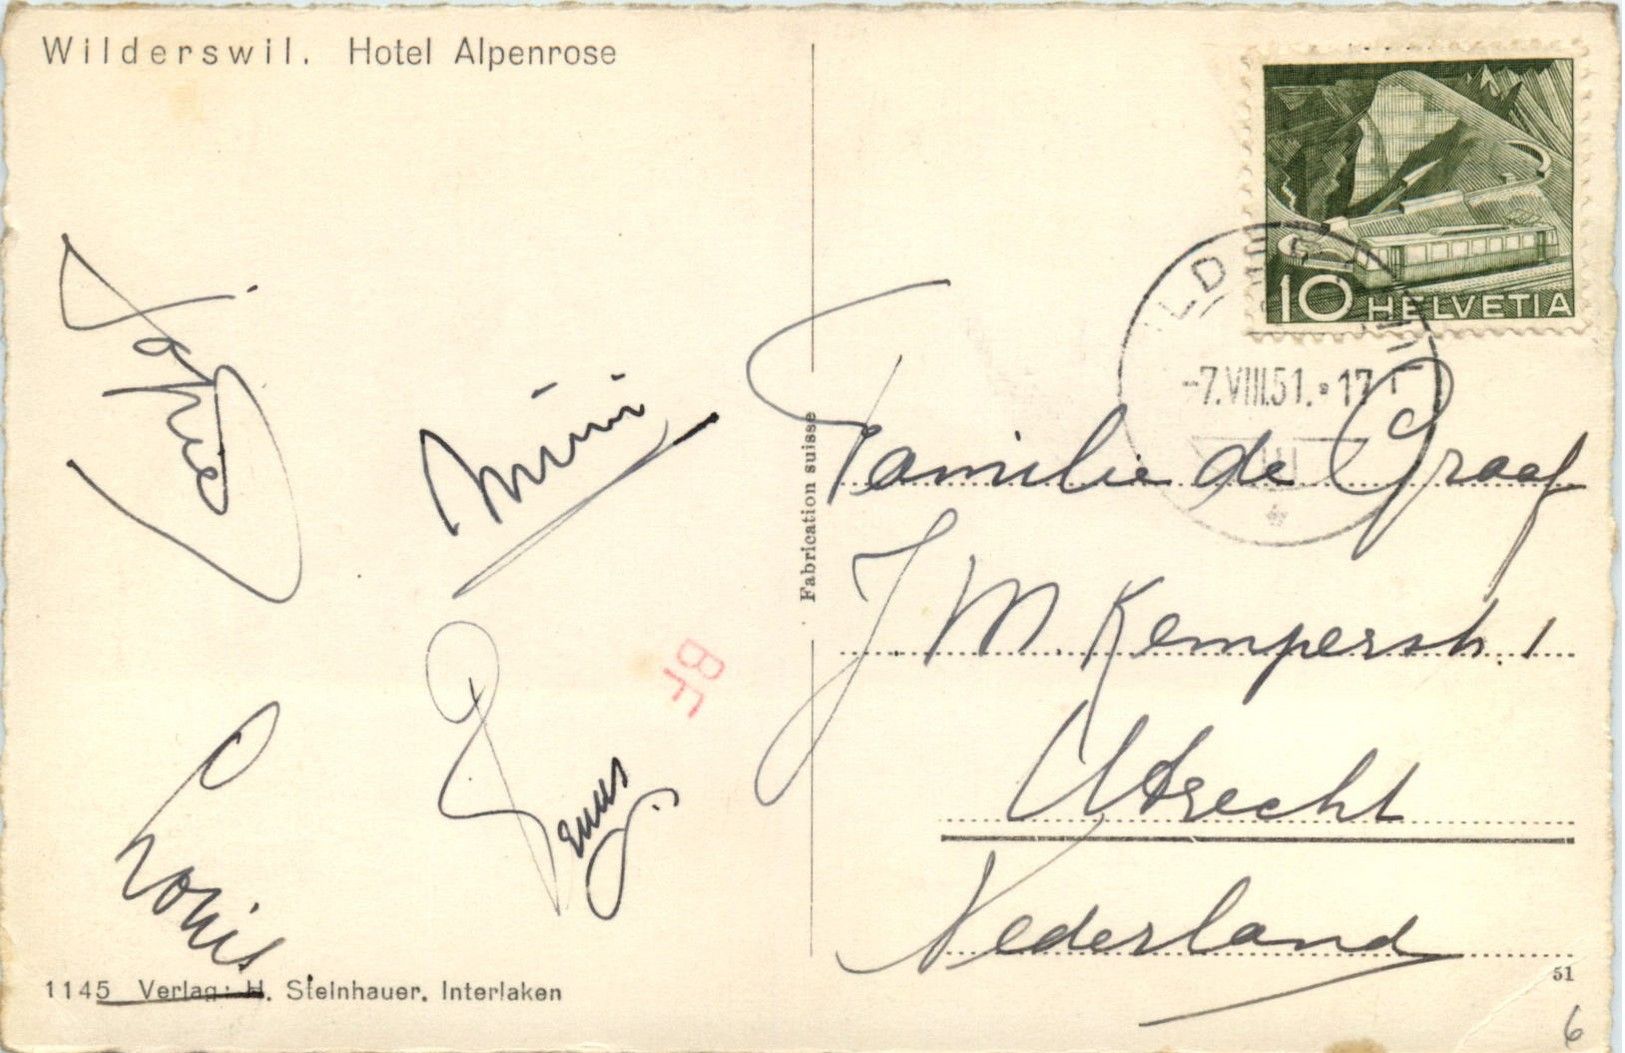 Wilderswil. Hotel Alpenrose
10 HELVETIA
-7.VIII.51.•17
Mimi
Louis
BF
Fabrication suisse
Familie de Graaf
J. M. Kemperstr. 1
Utrecht
Nederland
1145 Verlag: H. Steinhauer. Interlaken
51
6